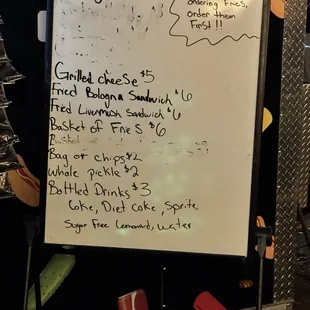 ordering Fries,
order them
First!!
Grilled cheese $5
Fried Bologna Sandwich $6
Fried Livermush Sandwich $6
Basket of Fries $6
Basket of
Bag of chips $2
whole pickle $2
Bottled Drinks $3
Coke, Diet Coke, Sprite,
Sugar Free Lemonard, water